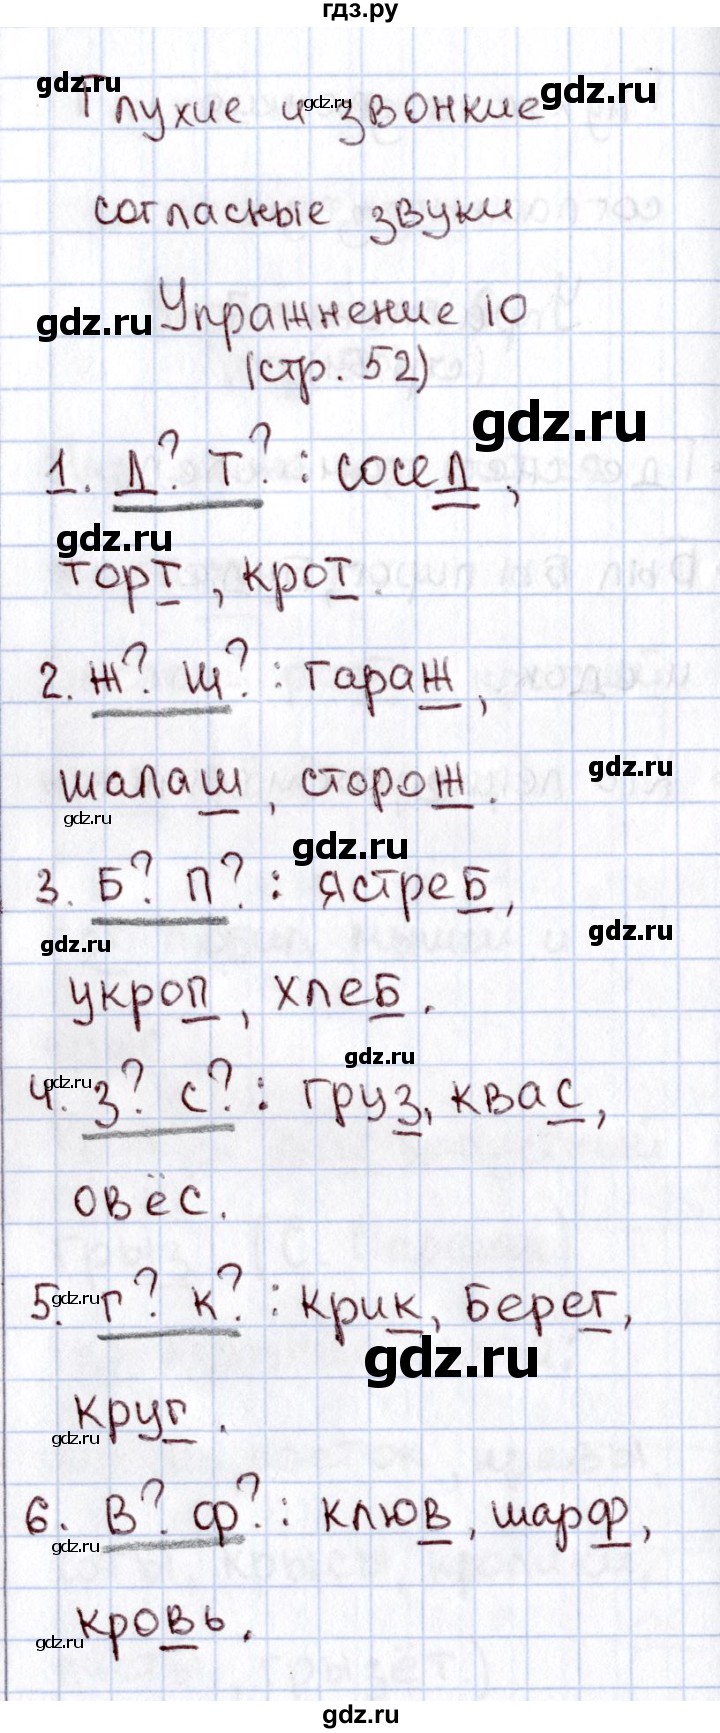 гдз.ру
gdz.ru
Глухие и звонкие
gdz.ru
gdz.ru
согласные звуки
gdz.ru
Упражнение 10
(стр. 52)
gdz.ru
1. Д? Т? : сосед,
gdz.ru
торт, крот.
2. Ж? Ш? : гараж,
gdz.ru
шалаш, сторож.
gdz.ru
gdz.ru
3. Б? П? : ястреб,
gdz.ru
gdz.ru
укроп, хлеб.
gdz.ru
gdz.ru
4. З? С? : груз, квас,
овёс.
gdz.ru
5. Г? К? : крик, берег,
gdz.ru
круг.
gdz.ru
6. В? Ф? : клюв, шарф,
gdz.ru
кровь.
gdz.ru
gdz.ru